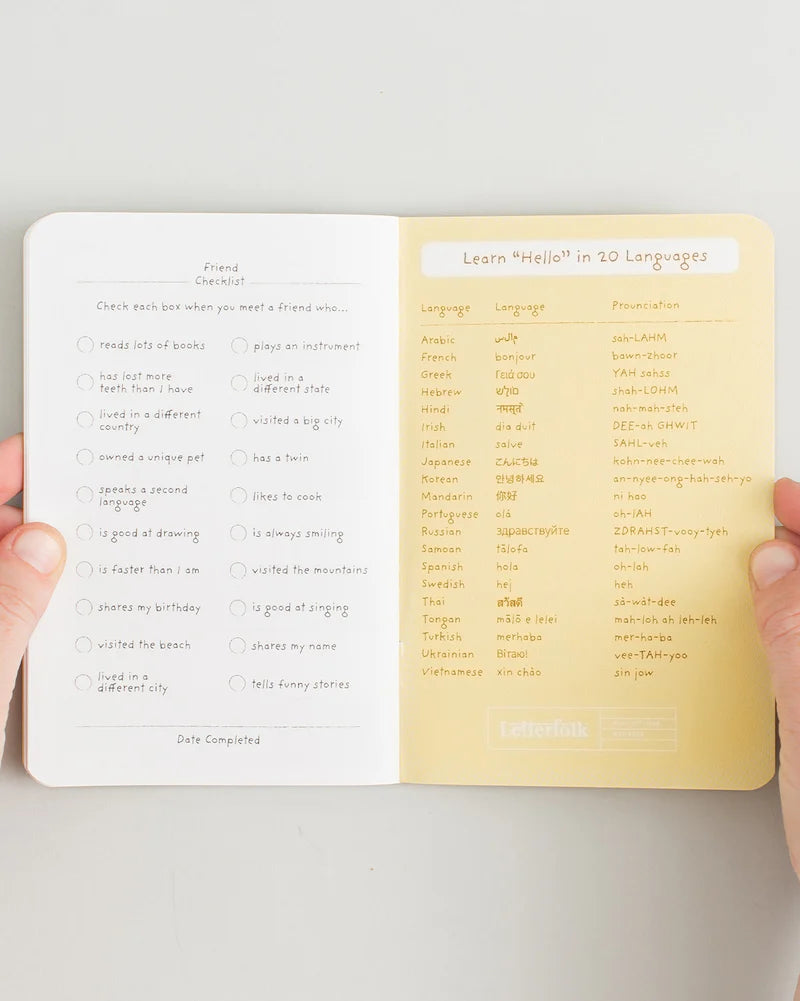 Friend
Checklist
Check each box when you meet a friend who...
reads lots of books
has lost more
teeth than I have
lived in a different
country
owned a unique pet
speaks a second
language
is good at drawing
is faster than I am
shares my birthday
visited the beach
lived in a
different city
plays an instrument
lived in a
different state
visited a big city
has a twin
likes to cook
is always smiling
visited the mountains
is good at singing
shares my name
tells funny stories
Date Completed
Learn “Hello” in 20 Languages
Language Language Prounciation
Arabic sah-LAHM
French bonjour bawn-zhoor
Greek Γειά σου YAH sahss
Hebrew shah-LOHM
Hindi नमस्ते nah-mah-steh
Irish dia duit DEE-ah GHWIT
Italian salve SAHL-veh
Japanese こんにちは kohn-nee-chee-wah
Korean 안녕하세요 an-nyee-ong-hah-seh-yo
Mandarin 你好 ni hao
Portuguese olá oh-lAH
Russian здравствуйте ZDRAHST-vooy-tyeh
Samoan tālofa tah-low-fah
Spanish hola oh-lah
Swedish hej heh
Thai สวัสดี sà-wàt-dee
Tongan mālō e lelei mah-loh ah leh-leh
Turkish merhaba mer-ha-ba
Ukrainian Вітаю! vee-TAH-yoo
Vietnamese xin chào sin jow
Letterfolk